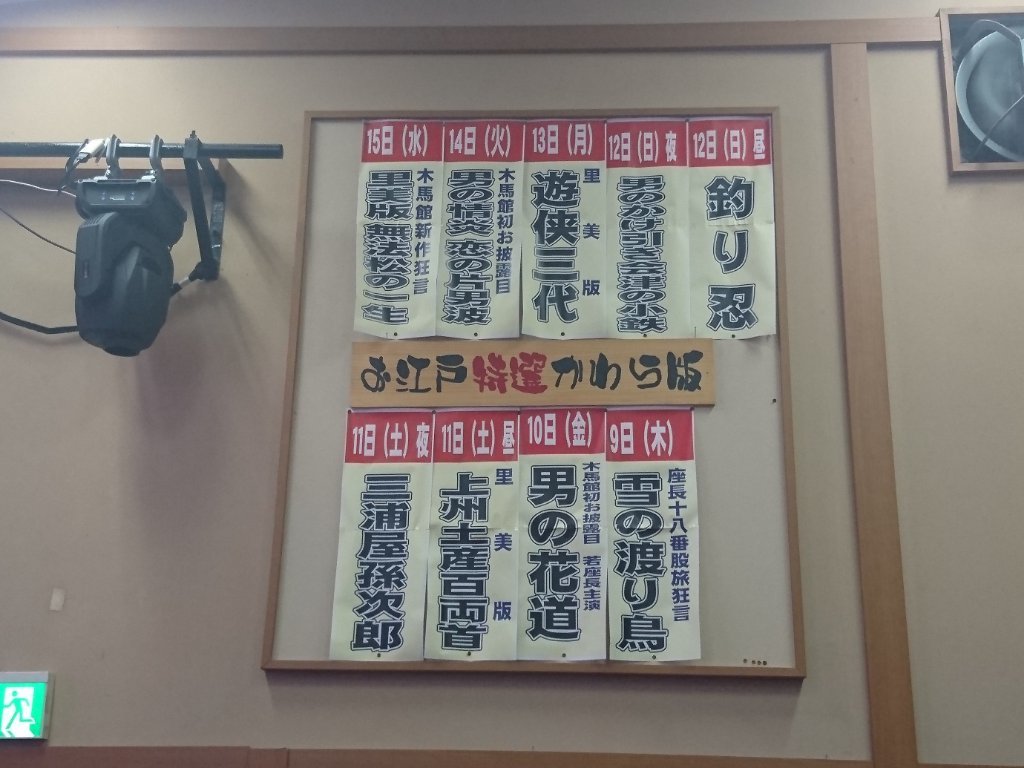 12日（日）昼
釣り忍
12日（日）夜
男のかけ引き会津の小鉄
13日（月）
里美版
遊侠三代
14日（火）
木馬館初お披露目
男の情炎 恋の片男波
15日（水）
木馬館新作狂言
里美版 無法松の一生
お江戸特選かわら版
9日（木）
座長十八番股旅狂言
雪の渡り鳥
10日（金）
木馬館初お披露目 若座長主演
男の花道
11日（土）昼
里美版
上州土産百両首
11日（土）夜
三浦屋孫次郎